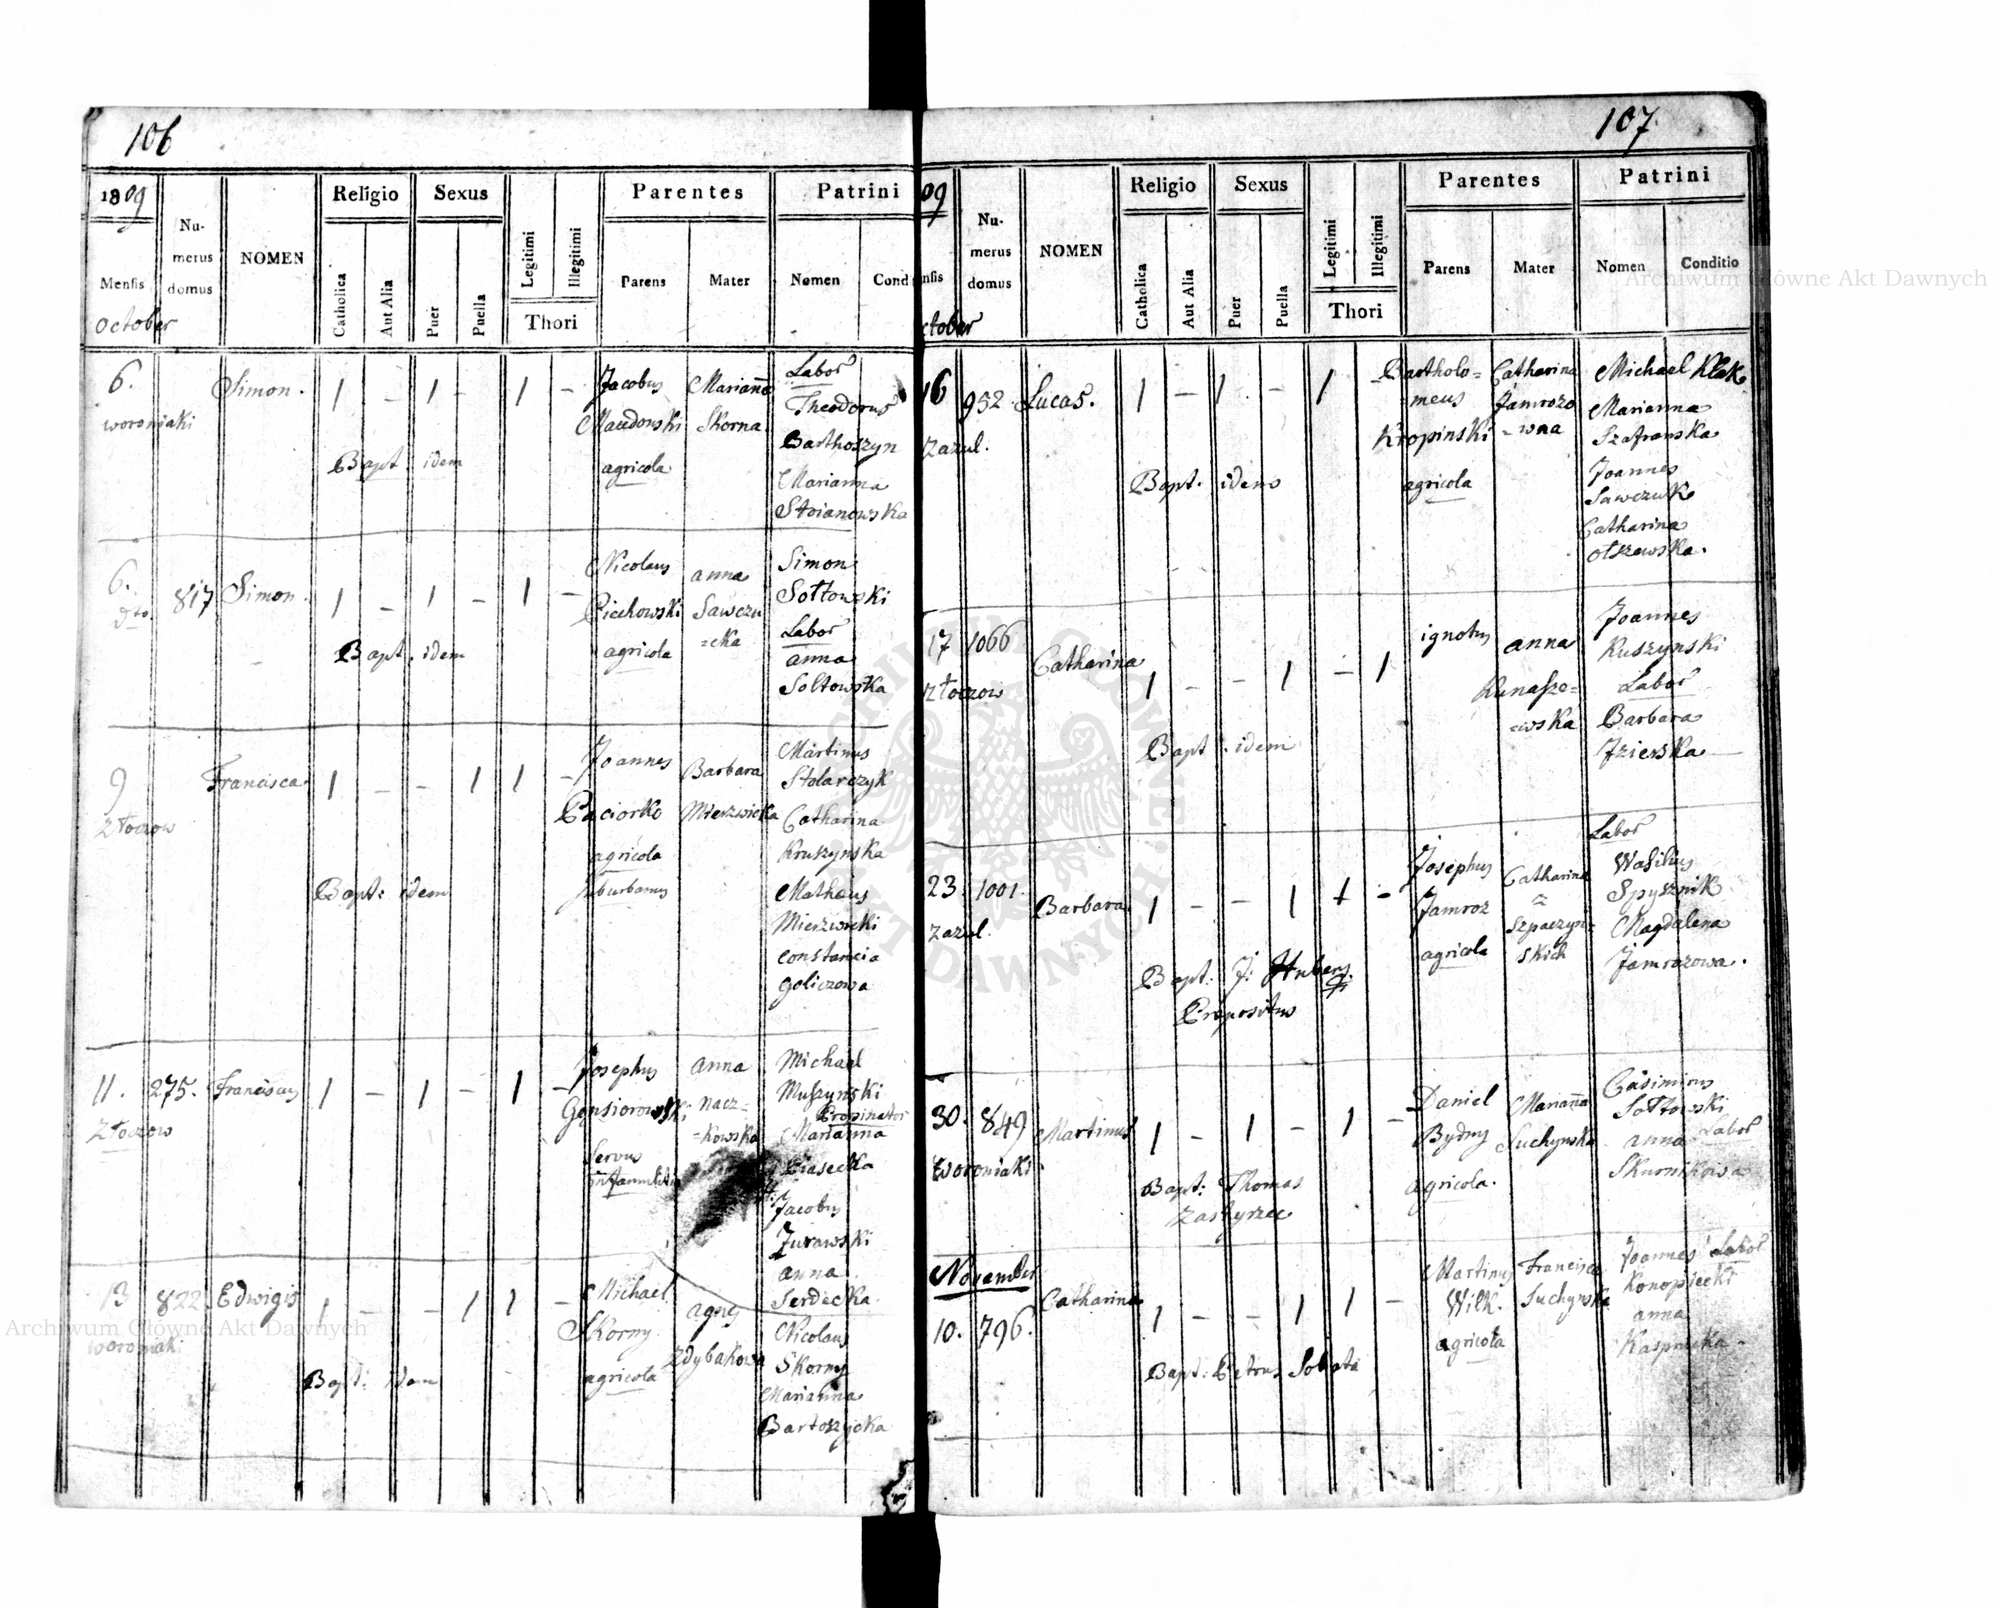 106
1809
Mensis
October
Numerus domus
NOMEN
Religio
Catholica
Aut Alia
Sexus
Puer
Puella
Legitimi
Illegitimi
Thori
Parentes
Parens
Mater
Patrini
Nomen
Cond
6.
woroniaki
Simon.
1 – 1 – 1 –
Bapt. idem
Jacobus
agricola
Marianna
Skorna
Labor
Theodorus
Barthoszyn
Marianna
Stoianowska
6.
dto.
817
Simon.
1 – 1 – 1 –
Bapt. idem
Nicolaus
Ciechowski
agricola
anna
Sawczu
=cka
Simon
Sołtowski
Labor
anna
Soltowska
9
Złoczow
Francisca
1 – – 1 1 –
Bapt: idem
Joannes
Paciorko
agricola
suburbanus
Barbara
Mierzwicka
Martinus
Stolarczyk
Catharina
Kruszynska
Mathæus
Mierzwicki
constancia
goliczowa
11.
Złoczow
275.
Franciscus
1 – 1 – 1 –
Josephus
Gęnsiorowski
Servus
anna
nacz=
=kowska
Michael
Muszynski
Propinator
Marianna
Piasecka
Jacobus
Jurawski
anna
Serdecka
13
woroniaki
822.
Edwigis
1 – – 1 1 –
Bapt: idem
Michael
Skorny
agricola
agnes
Zdybakowa
Nicolaus
Skorny
Marianna
Bartoszycka
107
09
nsis
ctober
Numerus domus
NOMEN
Religio
Catholica
Aut Alia
Sexus
Puer
Puella
Legitimi
Illegitimi
Thori
Parentes
Parens
Mater
Patrini
Nomen
Conditio
16
Zazul.
952
Lucas.
1 – 1 – 1 –
Bapt. idem
Bartholo=
=meus
Kropinski
agricola
Catharina
Jamrozo
=wna
Michael Klak
Marianna
Szafranska
Joannes
Sawczuk
Catharina
Olszewska.
17
Złoczow
1066
Catharina
1 – – 1 – 1
Bapt. idem
ignotus
anna
Kunasze=
=wska
Joannes
Kuszynski
Labor
Barbara
Jzierska
23.
Zazul.
1001.
Barbara
1 – – 1 1 –
Bapt: J: Hubert
Propositus
Josephus
Jamroz
agricola
Catharina
Szpaczyn=
skich
Labor
Wasilius
Spysznik
Magdalena
Jamrozowa.
30.
Woroniaki.
849
Martinus
1 – 1 – 1 –
Bapt: Thomas
Zastyrzec
Daniel
Bydny
agricola.
Marianna
Suchynska
Casimirus
Sołtowski
anna Labor
Skurnikowa
November
10.
796.
Catharina
1 – – 1 1 –
Bapt: Petrus Sobota
Martinus
Wilk.
agricola
Francisca
Suchynska
Joannes Labor
Konopiecki
anna
Kaspricka
Archiwum Główne Akt Dawnych
Archiwum Główne Akt Dawnych
ARCHIWUM GŁÓWNE AKT DAWNYCH